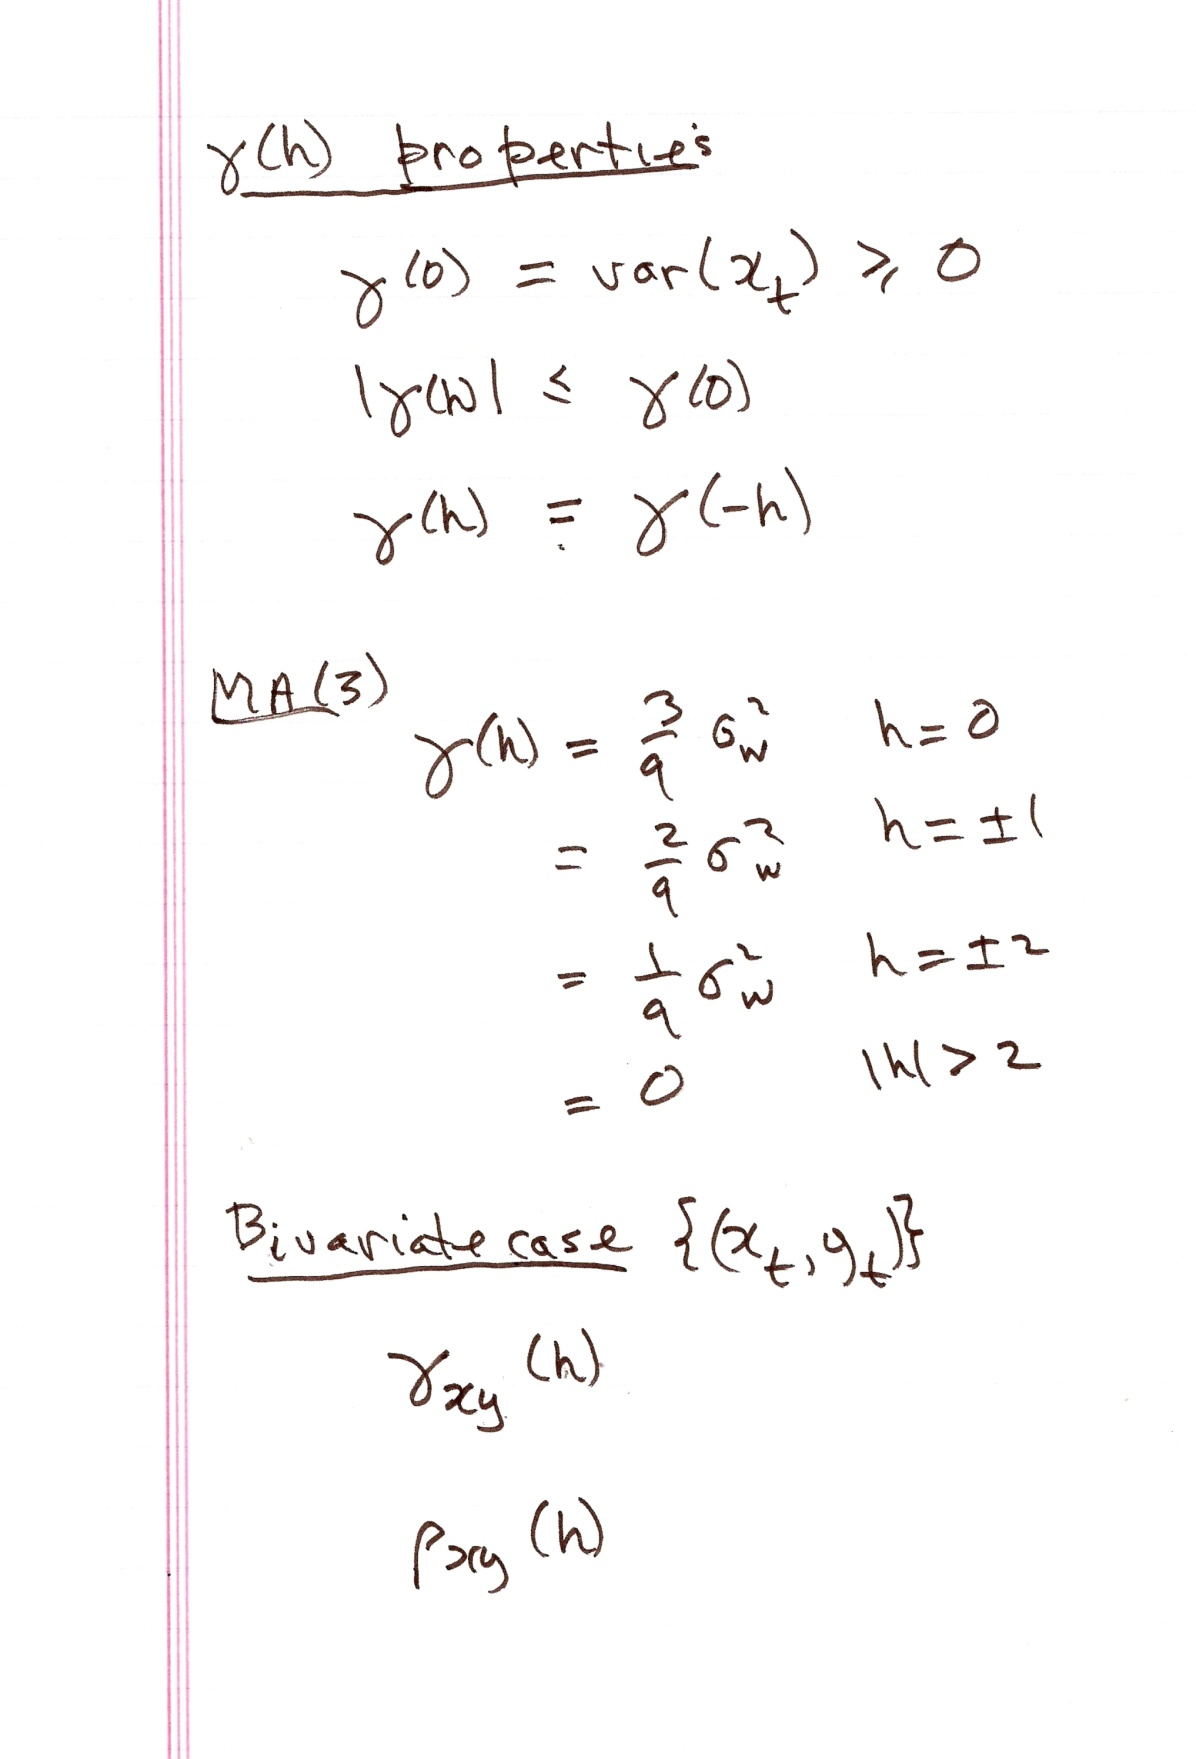 γ(h) properties
γ(0) = var(x_t) ⩾ 0
|γ(h)| ≤ γ(0)
γ(h) = γ(-h)
MA(3)
γ(h) = 3/9 σ_w^2 h = 0
= 2/9 σ_w^2 h = ±1
= 1/9 σ_w^2 h = ±2
= 0 |h| > 2
Bivariate case {(x_t, y_t)}
γ_xy (h)
ρ_xy (h)